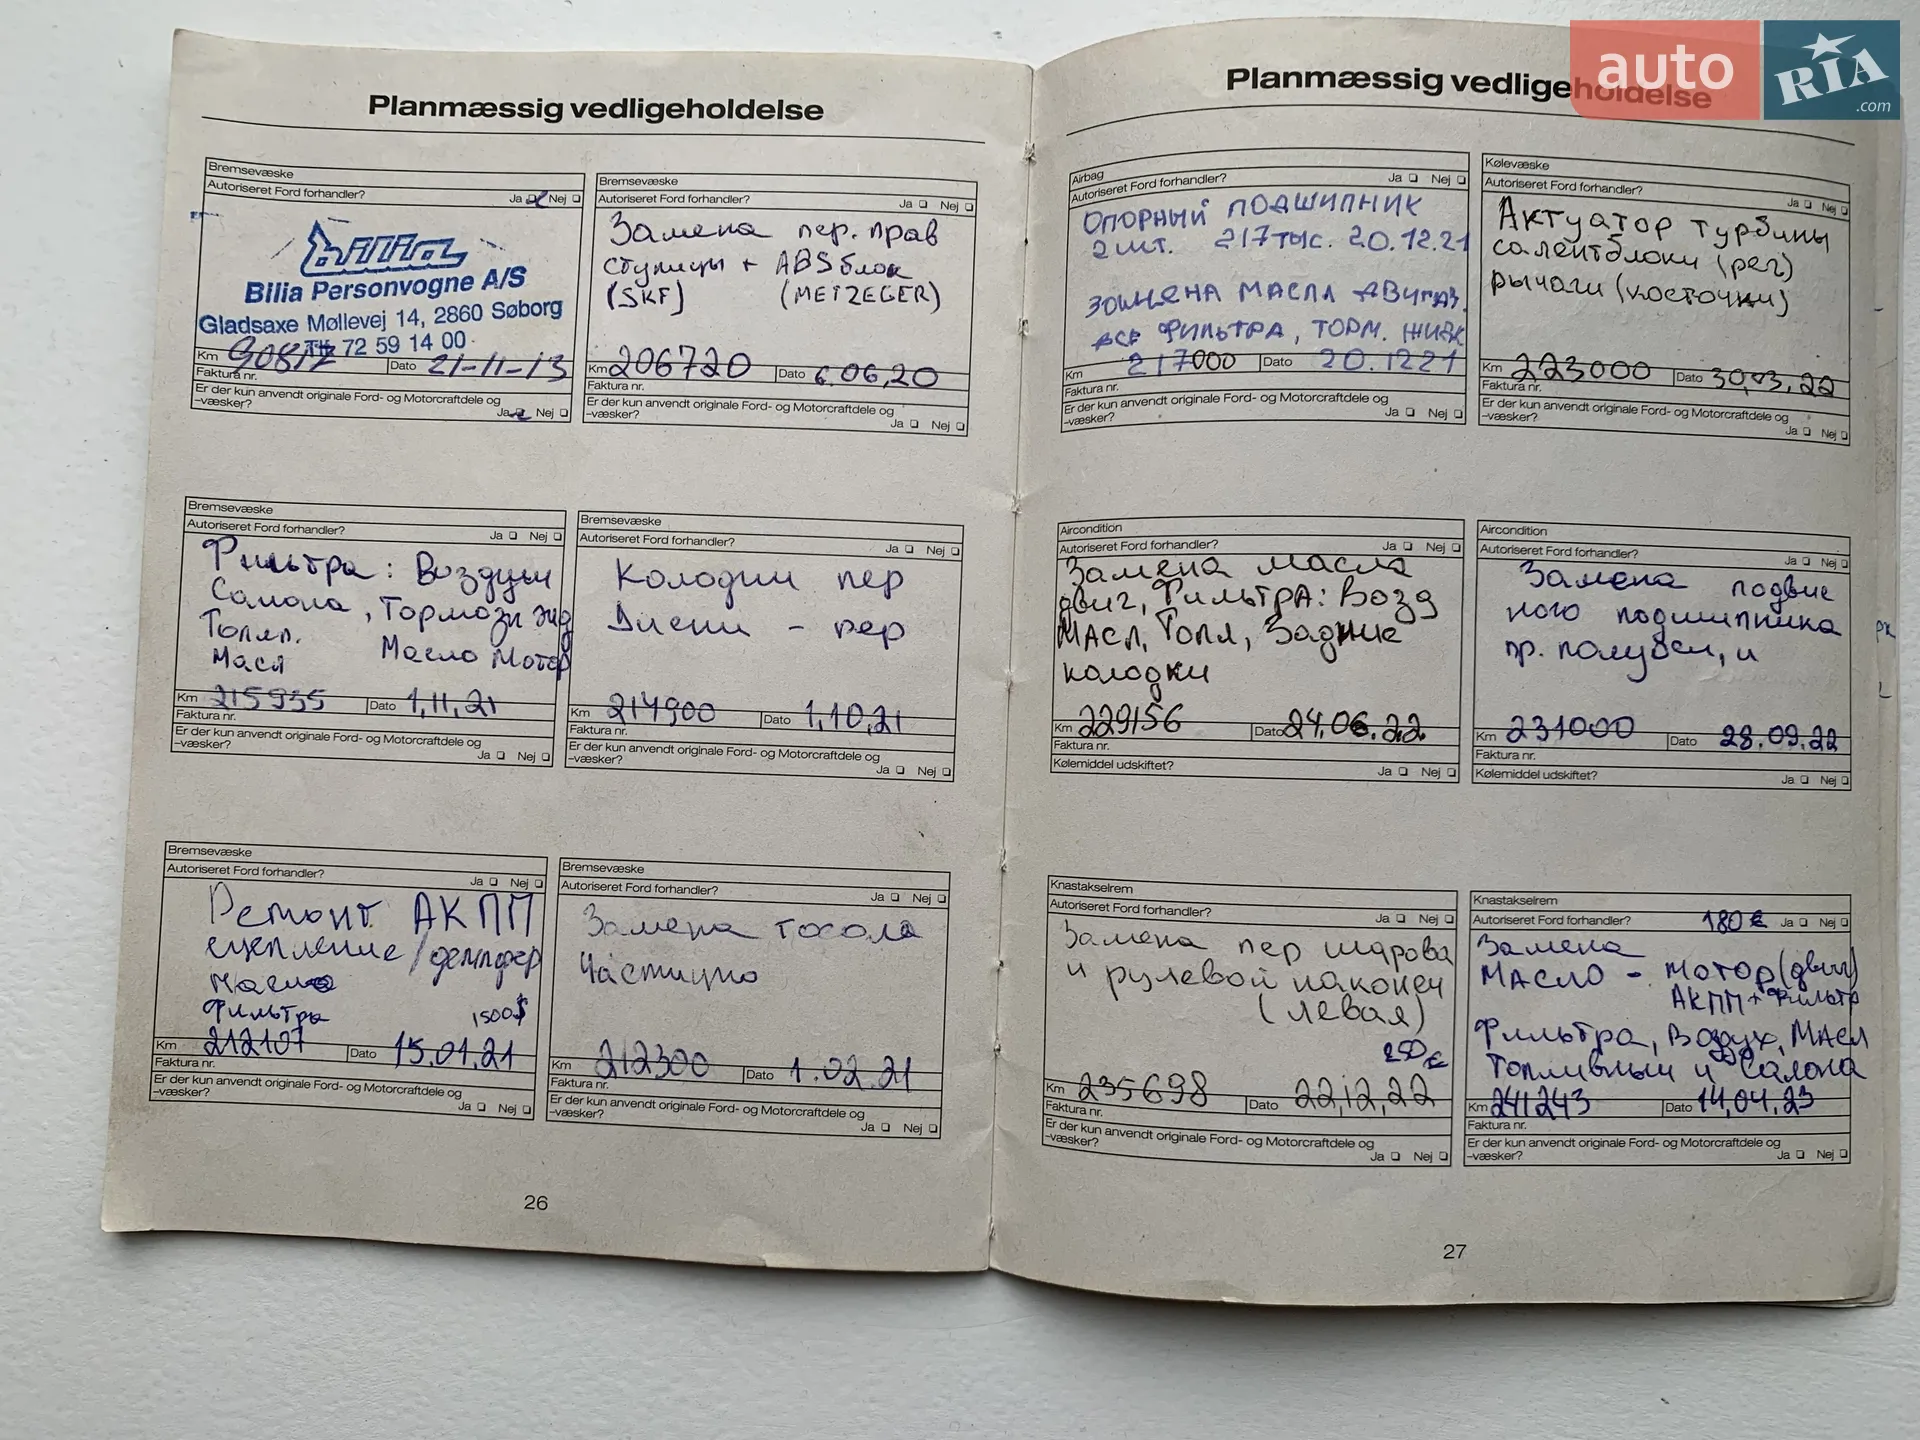 auto
RIA
.com
Planmæssig vedligeholdelse
Bremsevæske
Autoriseret Ford forhandler?
Ja Nej
bilia
Bilia Personvogne A/S
Gladsaxe Møllevej 14, 2860 Søborg
Tlf. 72 59 14 00
Km 90817 Dato 21-11-13
Faktura nr.
Er der kun anvendt originale Ford- og Motorcraftdele og
-væsker?
Ja Nej
Bremsevæske
Autoriseret Ford forhandler?
Ja Nej
Замена пер. прав
ступицы + ABS блок
(SKF) (METZEGER)
Km 206720 Dato 6.06,20
Faktura nr.
Er der kun anvendt originale Ford- og Motorcraftdele og
-væsker?
Ja Nej
Bremsevæske
Autoriseret Ford forhandler?
Ja Nej
Фильтра: Воздуш
Салона, Тормозн жид
Топл.
Масл Масло Мотор
Km 215935 Dato 1,11,21
Faktura nr.
Er der kun anvendt originale Ford- og Motorcraftdele og
-væsker?
Ja Nej
Bremsevæske
Autoriseret Ford forhandler?
Ja Nej
Колодки пер
Диски - пер
Km 214900 Dato 1,10,21
Faktura nr.
Er der kun anvendt originale Ford- og Motorcraftdele og
-væsker?
Ja Nej
Bremsevæske
Autoriseret Ford forhandler?
Ja Nej
Ремонт АКПП
сцепление/демпфер
Масло
Фильтра 1500$
Km 212107 Dato 15.01.21
Faktura nr.
Er der kun anvendt originale Ford- og Motorcraftdele og
-væsker?
Ja Nej
Bremsevæske
Autoriseret Ford forhandler?
Ja Nej
Замена тосола
частично
Km 212300 Dato 1.02.21
Faktura nr.
Er der kun anvendt originale Ford- og Motorcraftdele og
-væsker?
Ja Nej
26
Planmæssig vedligeholdelse
Airbag
Autoriseret Ford forhandler?
Ja Nej
ОПОРНЫЙ ПОДШИПНИК
2 шт. 217 тыс. 20.12.21
ЗАМЕНА МАСЛА ДВИГАТ.
ВСЕ ФИЛЬТРА, ТОРМ. ЖИДК
Km 217000 Dato 20.1221
Faktura nr.
Er der kun anvendt originale Ford- og Motorcraftdele og
-væsker?
Ja Nej
Kølevæske
Autoriseret Ford forhandler?
Ja Nej
Актуатор турбины
салентблоки (рег)
рычаги (косточки)
Km 223000 Dato 30,03,22
Faktura nr.
Er der kun anvendt originale Ford- og Motorcraftdele og
-væsker?
Ja Nej
Aircondition
Autoriseret Ford forhandler?
Ja Nej
Замена масла
двиг, Фильтра: Возд
Масл, Топл, Задние
колодки
Km 229156 Dato 24.06.22
Faktura nr.
Kølemiddel udskiftet?
Ja Nej
Aircondition
Autoriseret Ford forhandler?
Ja Nej
Замена подвис
ного подшипника
пр. полуоси, и
Km 231000 Dato 28.09.22
Faktura nr.
Kølemiddel udskiftet?
Ja Nej
Knastakselrem
Autoriseret Ford forhandler?
Ja Nej
Замена пер шарова
и рулевой наконеч
(левая)
250€
Km 235698 Dato 22,12,22
Faktura nr.
Er der kun anvendt originale Ford- og Motorcraftdele og
-væsker?
Ja Nej
Knastakselrem
Autoriseret Ford forhandler? 180€ Ja Nej
Замена
Масло - мотор(двиг)
АКПП + Фильтр
Фильтра, Воздух, Масл
Топливный и салона
Km 241243 Dato 14,04,23
Faktura nr.
Er der kun anvendt originale Ford- og Motorcraftdele og
-væsker?
Ja Nej
27